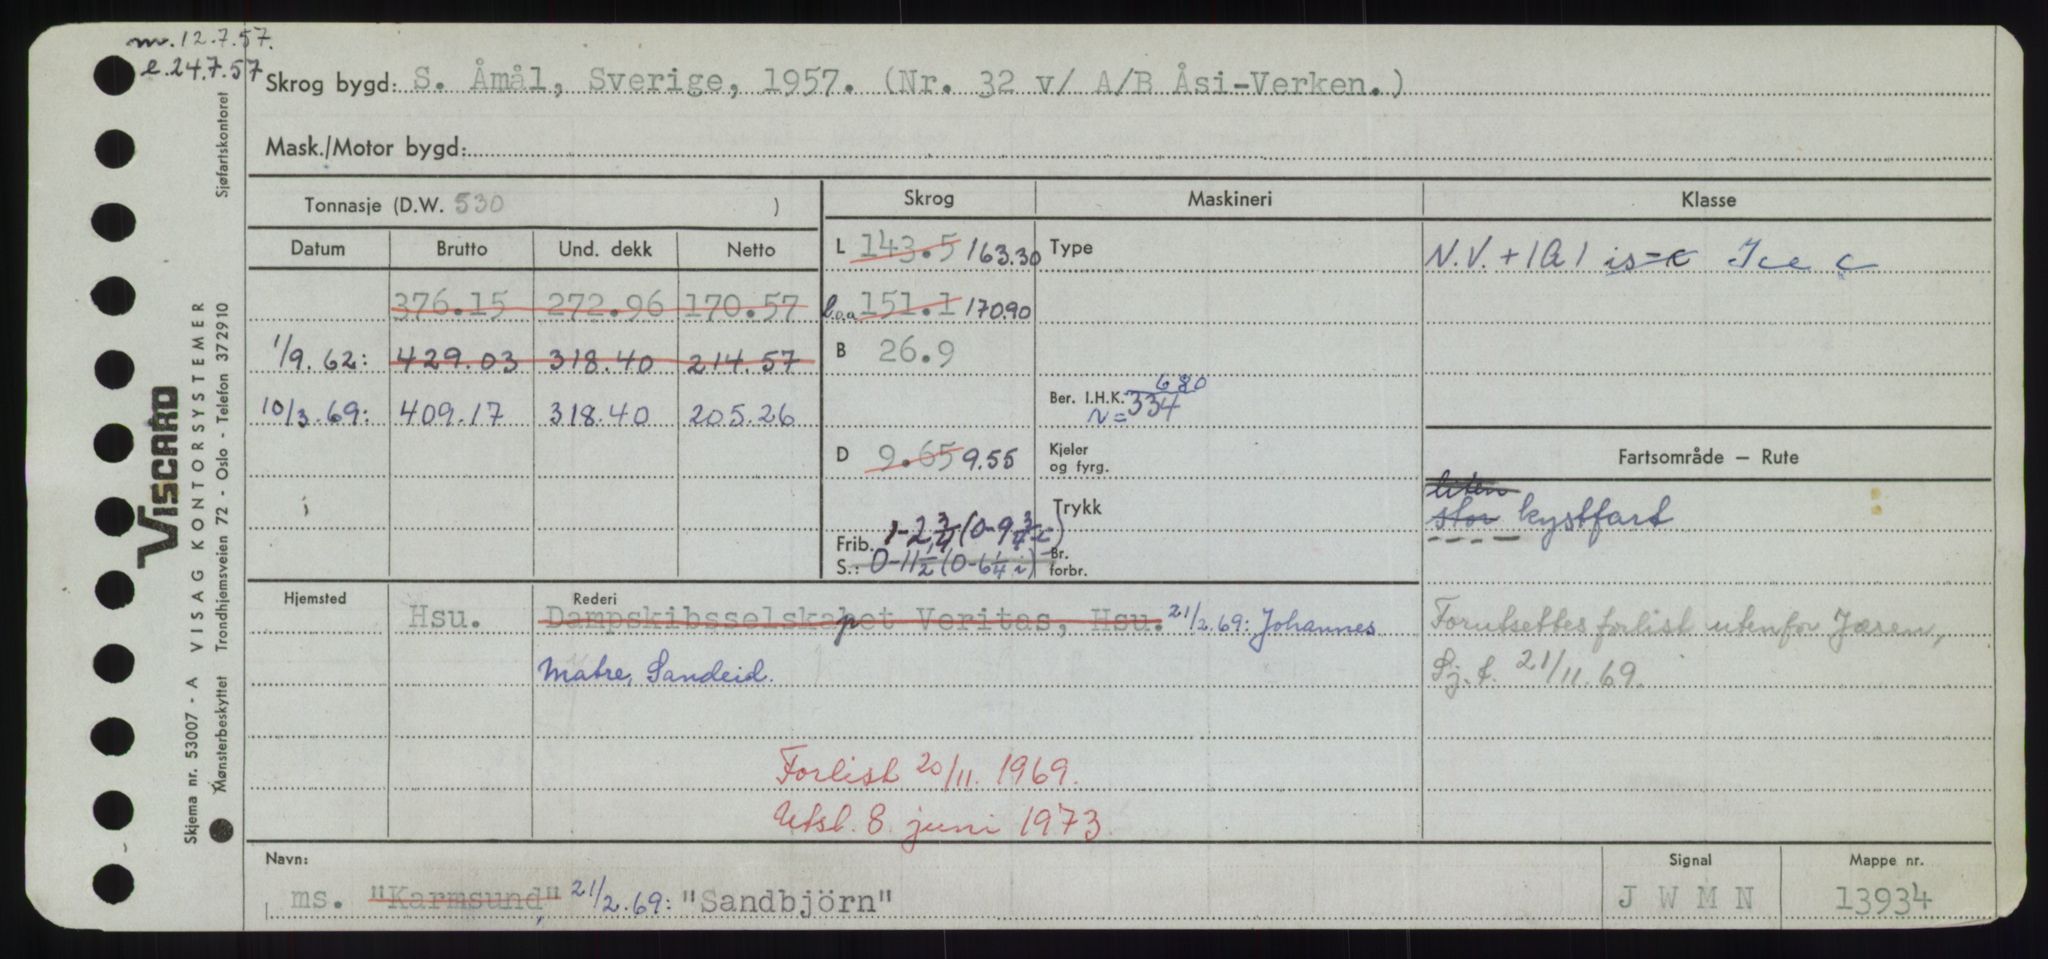 m. 12.7.57.
e. 24.7.57
Skrog bygd: S. Åmål, Sverige, 1957. (Nr. 32 v/ A/B Åsi-Verken.)
Mask./Motor bygd:
Tonnasje (D.W. 530 )
Skrog Maskineri Klasse
Datum Brutto Und. dekk Netto
L 143.5 163.30 Type N.V. + 1A1 is-c Ice c
376.15 272.96 170.57 l.o.a 151.1 170.90
1/9.62: 429.03 318.40 214.57 B 26.9
10/3.69: 409.17 318.40 205.26 Ber. I.H.K. 680
N = 334
D 9.65 9.55 Kjeler og fyrg. Fartsområde – Rute
liten
stor kystfart
Trykk
Frib. 1-2 3/4 (0-9 3/4 i)
S.: 0-11 1/2 (0-6 1/4 i) Br. forbr.
Hjemsted Rederi
Hsu. Dampskibsselskapet Veritas, Hsu. 21/2.69: Johannes
Matre, Sandeid.
Forutsettes forlist utenfor Jæren,
Sj.t. 21/11.69.
Forlist 20/11. 1969.
Utsl. 8. juni 1973.
Navn: Signal Mappe nr.
ms. "Karmsund", 21/2.69: "Sandbjörn" J W M N 13934
VISCARD
Skjema nr. 53007 - A VISAG KONTORSYSTEMER
Mønsterbeskyttet Trondhjemsveien 72 - Oslo - Telefon 372910
Sjøfartskontoret